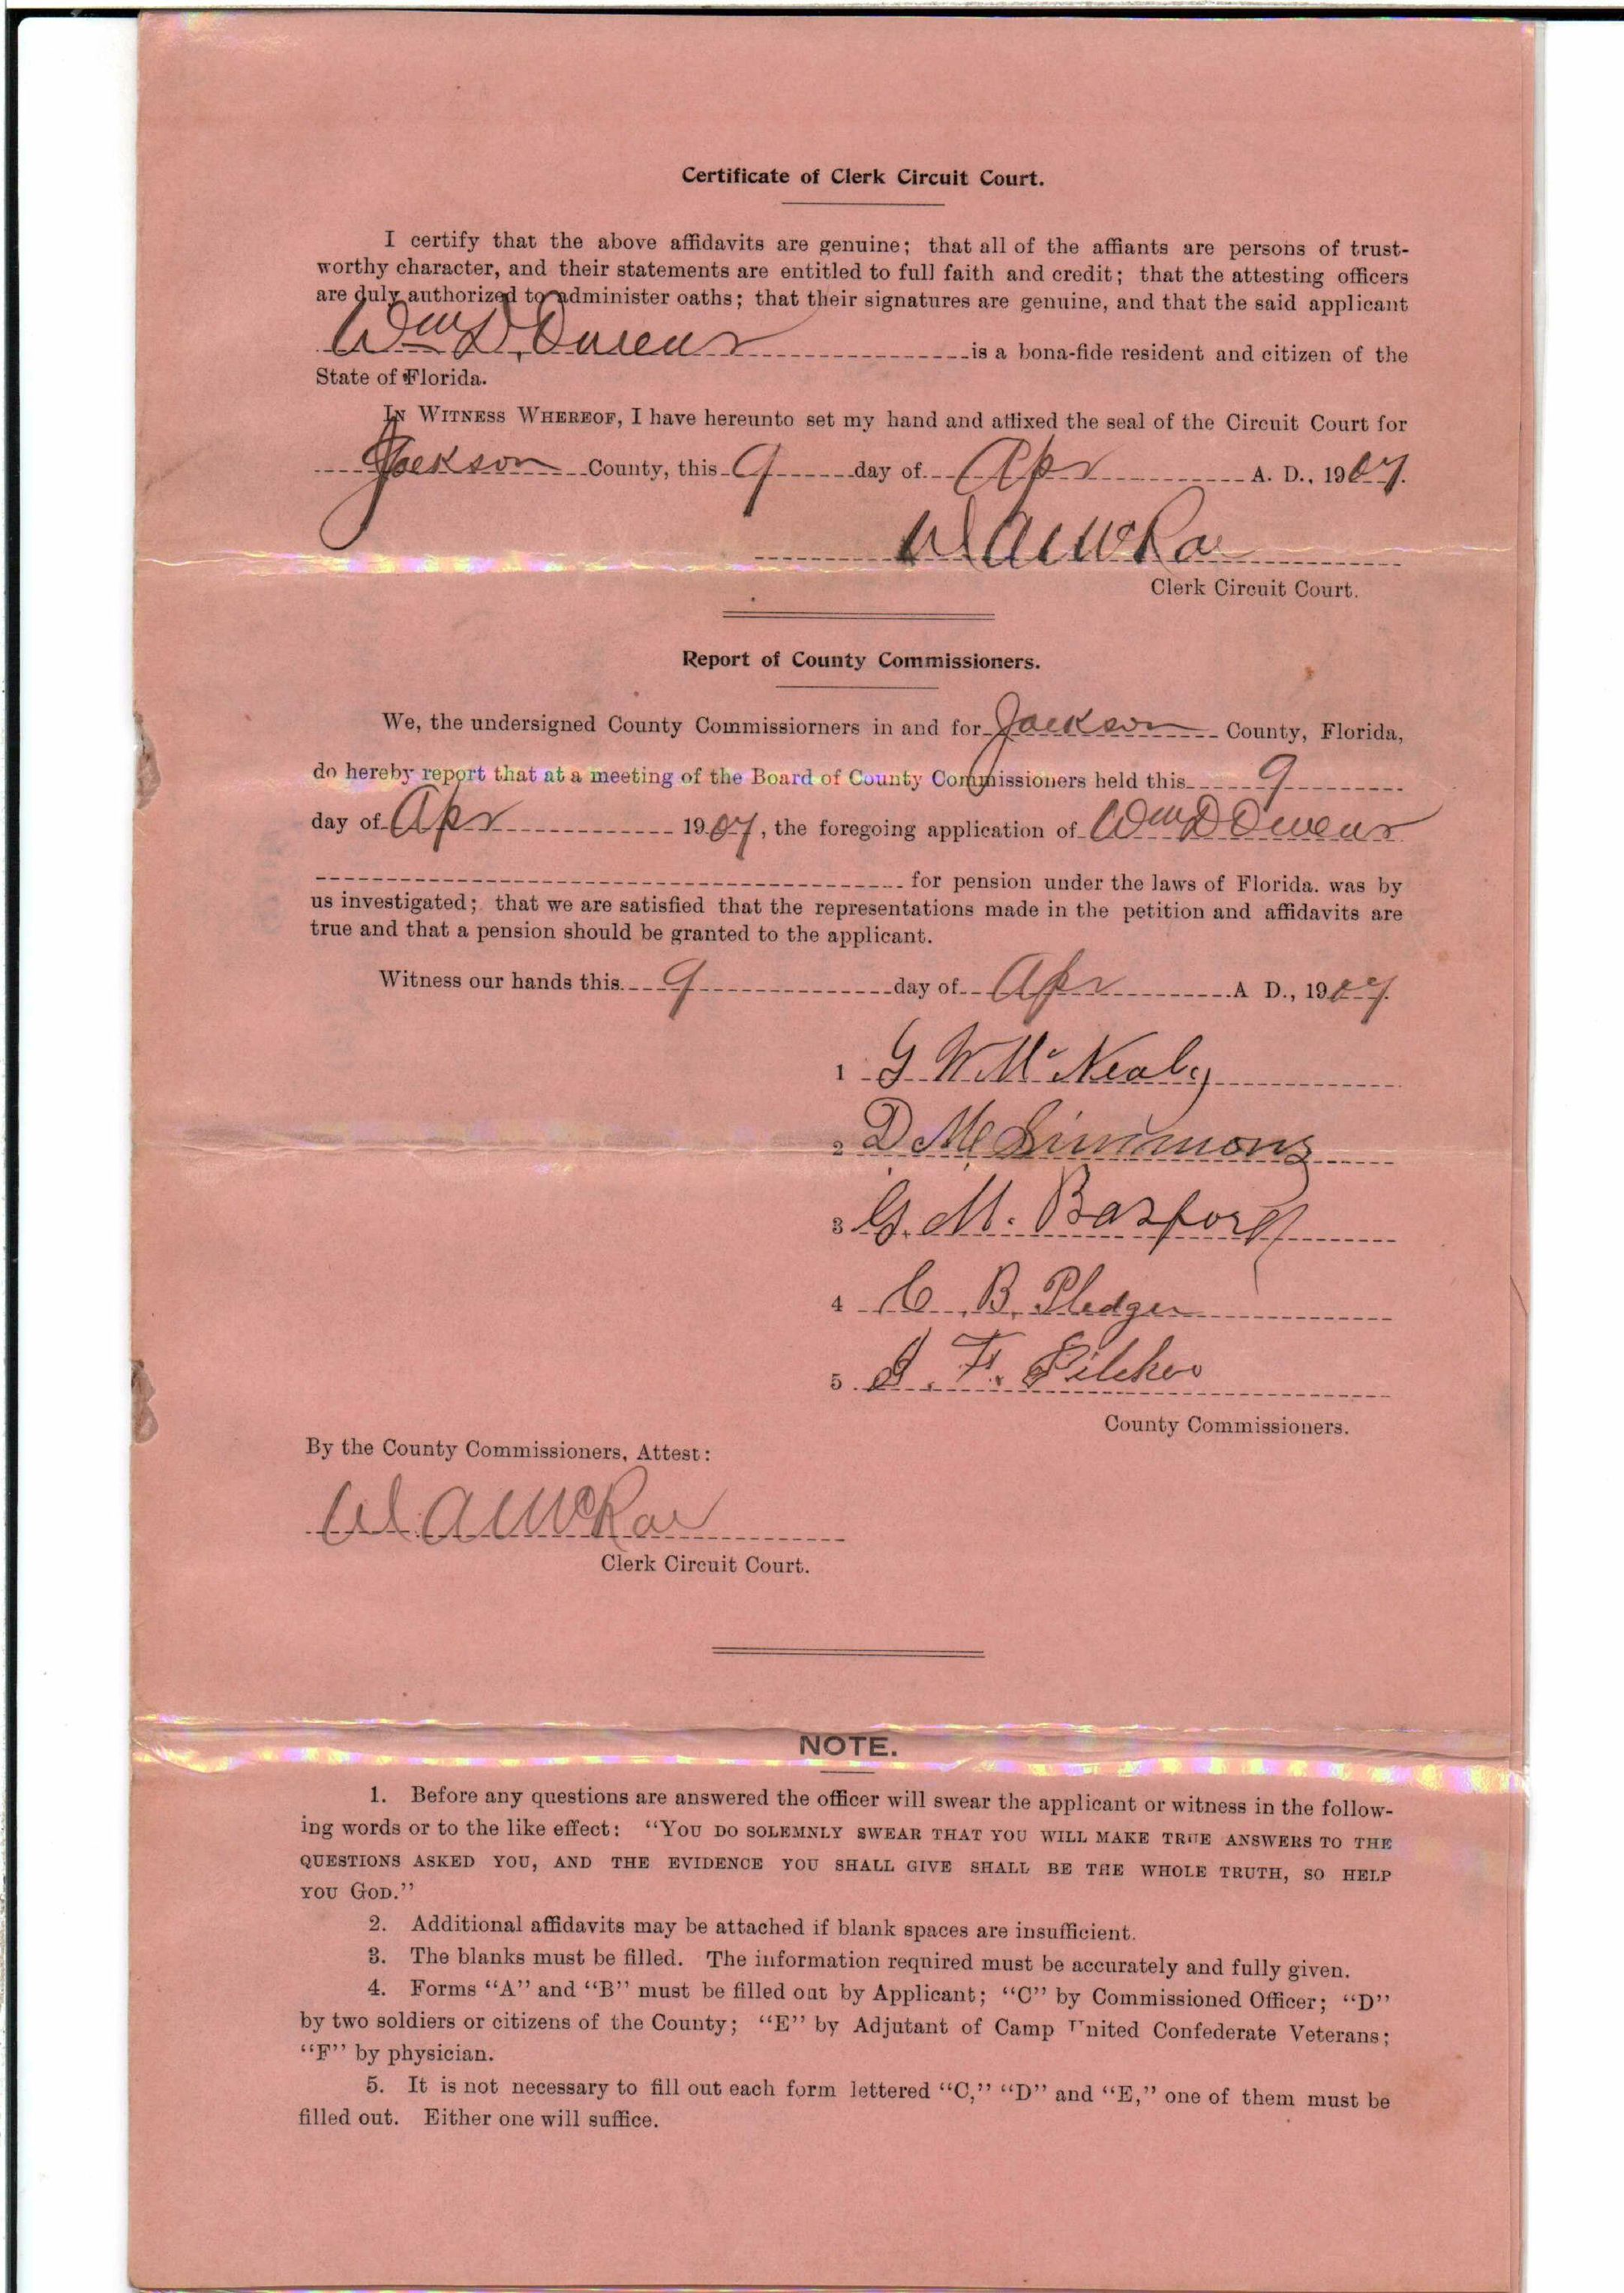 Certificate of Clerk Circuit Court.
I certify that the above affidavits are genuine; that all of the affiants are persons of trust-
worthy character, and their statements are entitled to full faith and credit; that the attesting officers
are duly authorized to administer oaths; that their signatures are genuine, and that the said applicant
Wm D. Owens is a bona-fide resident and citizen of the
State of Florida.
IN WITNESS WHEREOF, I have hereunto set my hand and affixed the seal of the Circuit Court for
Jackson County, this 9 day of Apr A. D., 1907.
W A McRae
Clerk Circuit Court.
Report of County Commissioners.
We, the undersigned County Commissiorners in and for Jackson County, Florida,
do hereby report that at a meeting of the Board of County Commissioners held this 9
day of Apr 1907, the foregoing application of Wm D Owens
for pension under the laws of Florida. was by
us investigated; that we are satisfied that the representations made in the petition and affidavits are
true and that a pension should be granted to the applicant.
Witness our hands this 9 day of Apr A D., 1907.
1 G W McNealy
2 D M Simmons
3 G. M. Basford
4 C. B. Pledger
5. J. F. Pilcher
County Commissioners.
By the County Commissioners, Attest:
W A McRae
Clerk Circuit Court.
NOTE.
1. Before any questions are answered the officer will swear the applicant or witness in the follow-
ing words or to the like effect: "YOU DO SOLEMNLY SWEAR THAT YOU WILL MAKE TRUE ANSWERS TO THE
QUESTIONS ASKED YOU, AND THE EVIDENCE YOU SHALL GIVE SHALL BE THE WHOLE TRUTH, SO HELP
YOU GOD."
2. Additional affidavits may be attached if blank spaces are insufficient.
3. The blanks must be filled. The information required must be accurately and fully given.
4. Forms "A" and "B" must be filled out by Applicant; "C" by Commissioned Officer; "D"
by two soldiers or citizens of the County; "E" by Adjutant of Camp United Confederate Veterans;
"F" by physician.
5. It is not necessary to fill out each form lettered "C," "D" and "E," one of them must be
filled out. Either one will suffice.